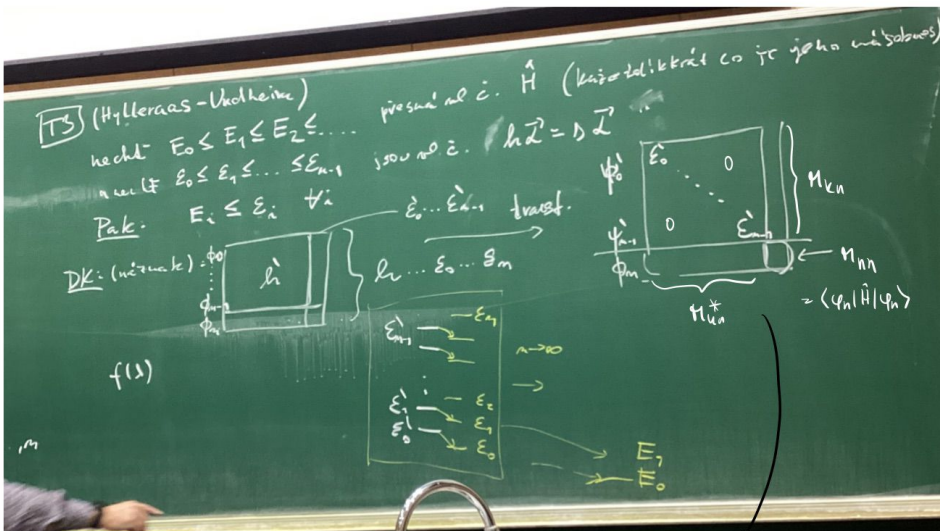 T3 (Hylleraas-Undheim)
nechť E₀ ≤ E₁ ≤ E₂ ≤ .... přesná vl. č. Ĥ (každé tolikrát co je jeho násobnost)
nechť ε₀ ≤ ε₁ ≤ ... ≤ εₙ₋₁ jsou vl. č.
Pak: Eᵢ ≤ εᵢ ∀i
DK: (náznak):
φ₀
h̀
φₙ
ὲ₀ ... ὲₙ₋₁ transf.
h ... ε₀ ...
ψ̀₀
ὲ₀ 0
0 ὲₙ₋₁
ψ̀ₙ₋₁
φₙ
Mₖₙ
Mₙₙ
= ⟨φₙ|Ĥ|φₙ⟩
Mₖₙ*
f(λ)
ὲₙ₋₁
ὲ₁
ὲ₀
ε₂
ε₁
ε₀
n→∞
E₁
E₀